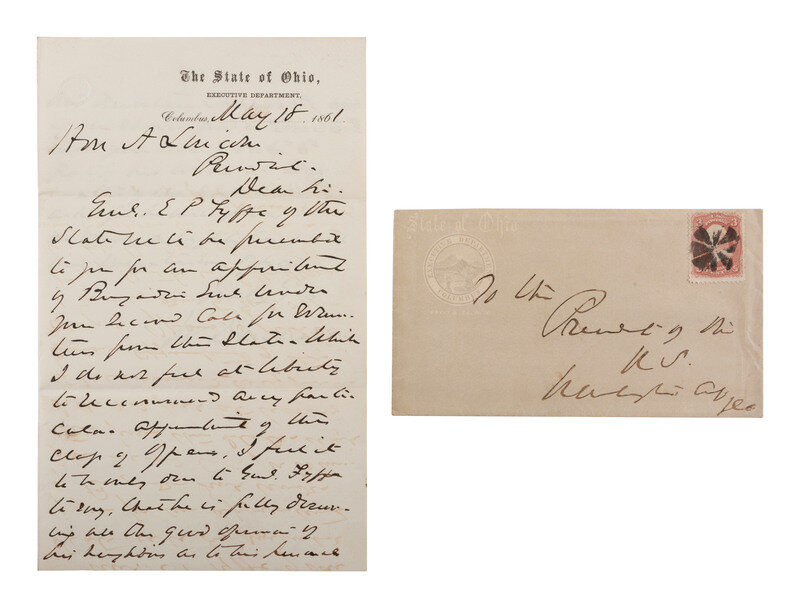 The State of Ohio,
EXECUTIVE DEPARTMENT,
Columbus, May 18 1861.
Hon A Lincoln
President.
Dear Sir.
Genl. E P Fyffe of this
State is to be presented
to you for an appointment
of Brigadier Genl under
your second Call for Volun
teers from this State. While
I do not feel at liberty
to recommend any parti-
cular appointment of this
class of officers, I feel it
to be only due to Genl. Fyffe
to say, that he is fully deserv-
ing all the good opinion of
his neighbors as to his personal
State of Ohio
EXECUTIVE DEPARTMENT
COLUMBUS
3
3
To the
President of the
U.S.
Washington City